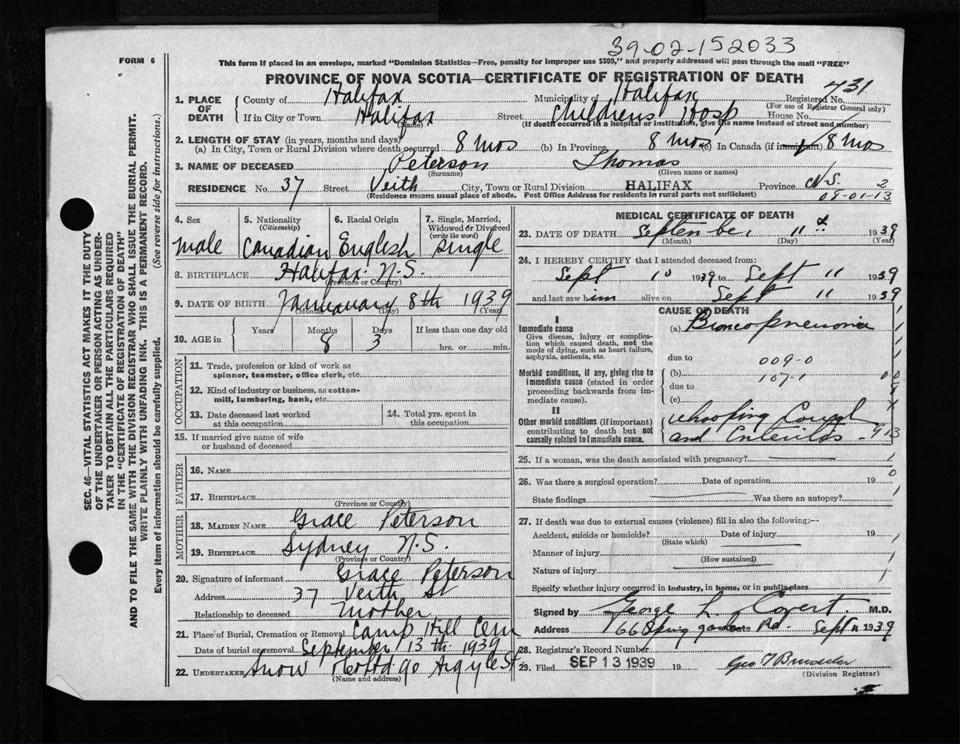 39-02-152033
FORM 6
This form if placed in an envelope, marked "Dominion Statistics—Free, penalty for improper use $300," and properly addressed will pass through the mail "FREE"
PROVINCE OF NOVA SCOTIA—CERTIFICATE OF REGISTRATION OF DEATH
SEC. 46—VITAL STATISTICS ACT MAKES IT THE DUTY
OF THE UNDERTAKER OR PERSON ACTING AS UNDER-
TAKER TO OBTAIN ALL THE PARTICULARS REQUIRED
IN THE "CERTIFICATE OF REGISTRATION OF DEATH"
AND TO FILE THE SAME WITH THE DIVISION REGISTRAR WHO SHALL ISSUE THE BURIAL PERMIT.
WRITE PLAINLY WITH UNFADING INK. THIS IS A PERMANENT RECORD.
Every item of information should be carefully supplied. (See reverse side for instructions.)
1. PLACE OF DEATH County of Halifax Municipality of Halifax Registered No. 431
(For use of Registrar General only)
If in City or Town Halifax Street Childrens Hosp House No.
(Name) (If death occurred in a hospital or institution, give the name instead of street and number)
2. LENGTH OF STAY (in years, months and days)
(a) In City, Town or Rural Division where death occurred 8 mos (b) In Province 8 mos (c) In Canada (if immigrant) 8 mos
3. NAME OF DECEASED Peterson Thomas
(Surname) (Given name or names)
RESIDENCE No. 37 Street Veith City, Town or Rural Division HALIFAX Province N.S. 2
(Residence means usual place of abode. Post Office Address for residents in rural parts not sufficient) 09-01-13
4. Sex 5. Nationality (Citizenship) 6. Racial Origin 7. Single, Married, Widowed or Divorced (write the word)
Male Canadian English Single
8. BIRTHPLACE Halifax N.S.
(Province or Country)
9. DATE OF BIRTH Januuary 8th 1939
(Month) (Day)
10. AGE in Years Months Days If less than one day old
8 3 hrs. or min.
OCCUPATION
11. Trade, profession or kind of work as
spinner, teamster, office clerk, etc.
12. Kind of industry or business, as cotton-
mill, lumbering, bank, etc.
13. Date deceased last worked
at this occupation
14. Total yrs. spent in
this occupation
15. If married give name of wife
or husband of deceased
FATHER
16. NAME
17. BIRTHPLACE
(Province or Country)
MOTHER
18. MAIDEN NAME Grace Peterson
19. BIRTHPLACE Sydney N.S.
(Province or Country)
20. Signature of informant Grace Peterson
Address 37 Veith St
Relationship to deceased Mother
21. Place of Burial, Cremation or Removal Camp Hill Cem
Date of burial or removal September 13th 1939
22. UNDERTAKER Snow &Co Ltd 90 Argyle St
(Name and address)
MEDICAL CERTIFICATE OF DEATH
23. DATE OF DEATH September 11th 1939
(Month) (Day)
24. I HEREBY CERTIFY that I attended deceased from:
Sept 10 1939 to Sept 11 1939
and last saw him alive on Sept 11 1939
CAUSE OF DEATH
I
Immediate cause
Give disease, injury or complica-
tion which caused death, not the
mode of dying, such as heart failure,
asphyxia, asthenia, etc.
(a) Broncopneumonia
due to 009-0
Morbid conditions, if any, giving rise to
immediate cause (stated in order
proceeding backwards from im-
mediate cause).
(b) 107-1
due to
(c)
II
Other morbid conditions (if important)
contributing to death but not
causally related to immediate cause.
Whooping Cough
and Enteritis
25. If a woman, was the death associated with pregnancy?
26. Was there a surgical operation? Date of operation 19
State findings Was there an autopsy?
27. If death was due to external causes (violence) fill in also the following:—
Accident, suicide or homicide? Date of injury 19
(State which)
Manner of injury
(How sustained)
Nature of injury
Specify whether injury occurred in industry, in home, or in public place
Signed by George L. Covert M.D.
Address 166 Spring garden Rd. Sept 11 1939
28. Registrar's Record Number
29. Filed SEP 13 1939 19
(Division Registrar)